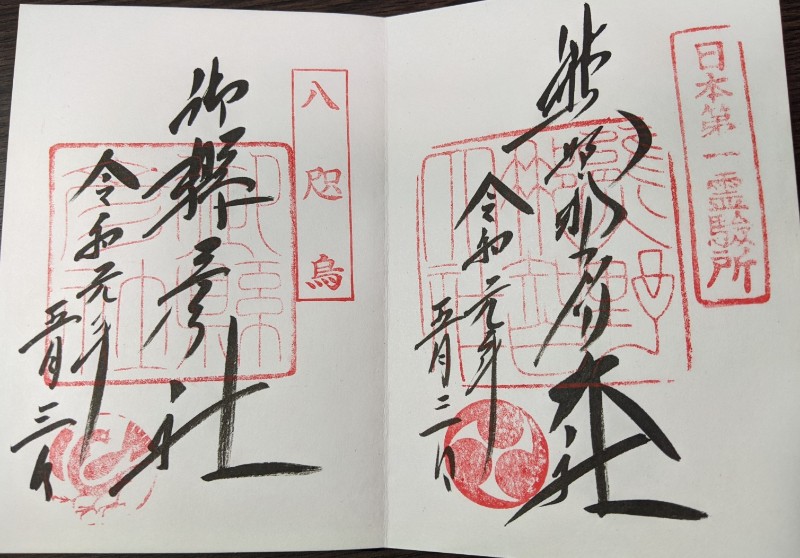 日本第一霊験所
熊野那智大社
令和元年
五月三日
八咫烏
御縣彦社
令和元年
五月三日